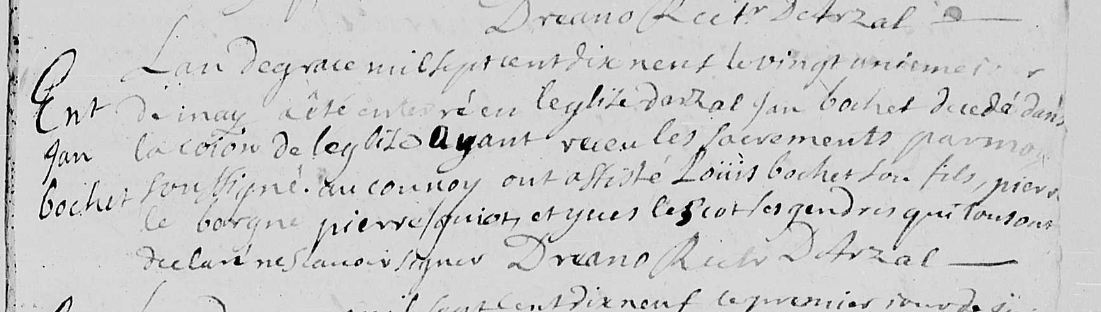 Dreano Rectr DArzal
Lan de grace mil sept cent dix neuf le vingt unieme jour
Ent
de may a êté enterré en leglise darzal Jan bochet decedé dans
Jan
la coion de leglise ayant receu les sacrements par moy
bochet
soussigné. au convoy ont assisté Loüis bochet son fils, pierre
le borgne pierre guiot, et yues le scot ses gendres qui tous ont
declaré ne scavoir signer Dreano Rectr DArzal
sept cent dix neuf le premier jour de